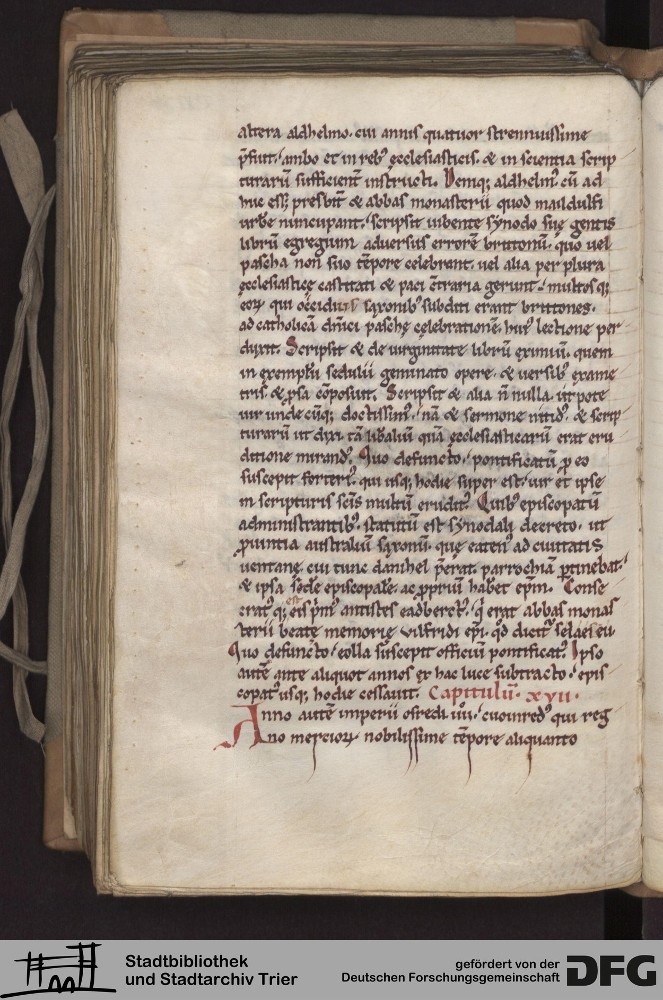 altera aldhelmo. cui annis quatuor strennuissime
p̄fuit. ambo et in reb' ęcclesiasticis. & in scientia scrip
turarū sufficient̄ instructi. Deniq; aldhelm' cū ad
huc ess; presbit̄ & abbas monasterii quod maildulfi
urbē nuncupant. scripsit iubente synodo suę gentis
librū egregium aduersus errorē brittonū. quo uel
pascha non suo tēpore celebrant. uel alia per plura
ęcclesiasticę castitati & paci c̄traria gerunt. multosq;
eoꝝ qui occiduis saxonib' subditi erant brittones.
ad catholicā dn̄ici paschę celebrationē. hui' lectione per
duxit. Scripsit & de uirginitate librū eximiū. quem
in exemplū sedulii geminato opere. & uersib' exame
tris. & p̱sa cōposuit. Scripsit & alia n̄ nulla. ut pote
uir undecūq; doctissim'. nā & sermone nitid'. & scrip
turarū ut dixi. tā liƀaliū quā ęcclesiasticarū erat eru
ditione mirand'. Quo defuncto. pontificatū ꝓ eo
suscepit forther'. qui usq; hodie super est. uir et ipse
in scripturis sc̄is multū erudit'. Quib' episcopatū
administrantib'. statutū est synodali decreto. ut
ꝓuintia australiū saxonū. quę eaten' ad ciuitatis
uentanę. cui tunc danihel p̄erat. parrochiā ꝑtinebat.
& ipsa sedē episcopalē. ac ꝓpriū haberet ep̄m. Conse
crat'q; est eis p̄m' antistes eadberct'. q̇ erat abbas monas
terii beatę memorię uilfridi ep̄i. qd̄ dicit' selaeseu
Quo defuncto. eolla suscepit officiū pontificat'. Ipso
autē ante aliquot annos ex hac luce subtracto. epis
copat' usq; hodie cessauit. Capitulū. xvii.
Anno autē imperii osredi iiii. cuoinred' qui reg
no merciorꝝ nobilissime tēpore aliquanto
Stadtbibliothek
und Stadtarchiv Trier
gefördert von der
Deutschen Forschungsgemeinschaft
DFG